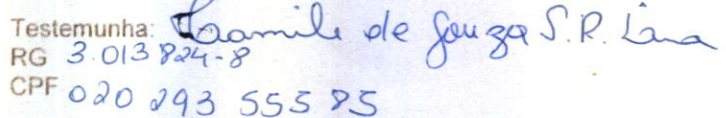 Testemunha: Kamile de Souza S.R. Lima
RG 3.013824-8
CPF 020 293 555 85